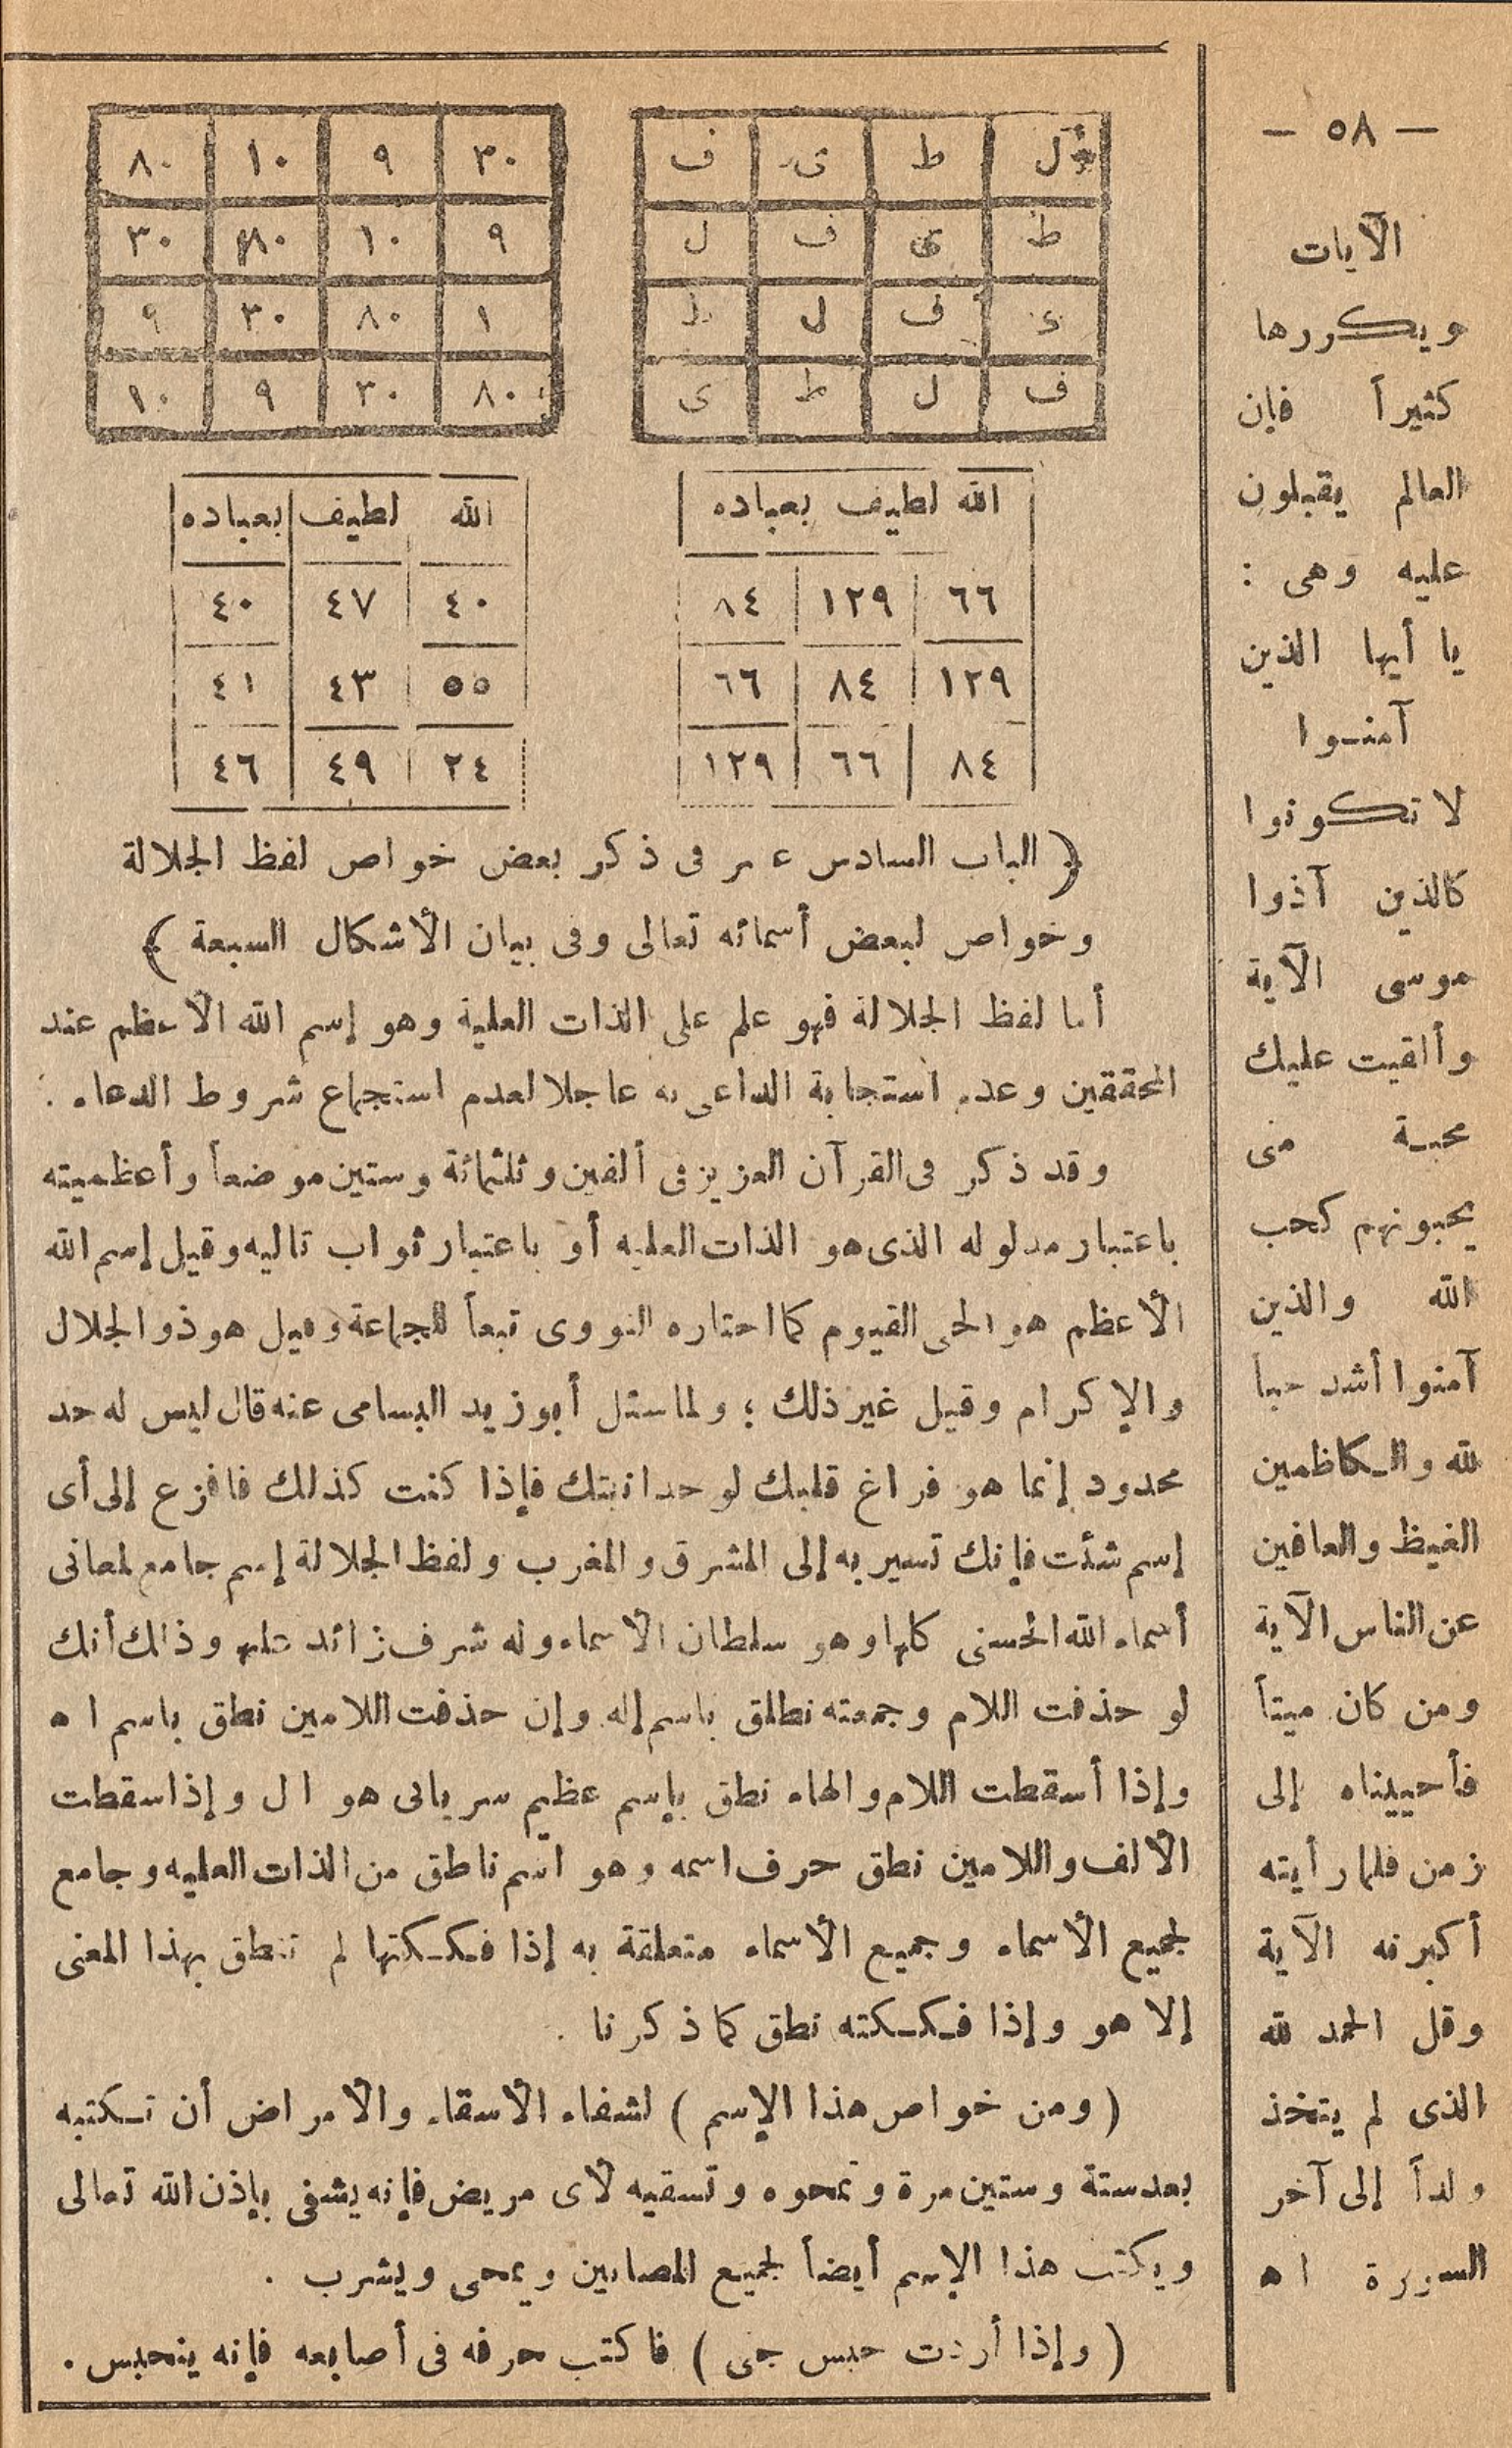 — ٥٨ —
الآيات
ويكررها
كثيراً فإن
العالم يقبلون
عليه وهى :
يا أيها الذين
آمنوا
لا تكونوا
كالذين آذوا
موسى الآية
وألقيت عليك
محبة منى
يحبونهم كحب
الله والذين
آمنوا أشد حباً
لله والكاظمين
الغيظ والعافين
عن الناس الآية
ومن كان ميتاً
فأحييناه إلى
زمن فلما رأيته
أكبرنه الآية
وقل الحمد لله
الذى لم يتخذ
ولداً إلى آخر
السورة ا ه
ل ط ى ف
ط ى ف ل
ى ف ل ط
ف ل ط ى
٣٠ ٩ ١٠ ٨٠
٩ ١٠ ٨٠ ٣٠
١ ٨٠ ٣٠ ٩
٨٠ ٣٠ ٩ ١٠
الله لطيف بعباده
٦٦ ١٢٩ ٨٤
١٢٩ ٨٤ ٦٦
٨٤ ٦٦ ١٢٩
الله لطيف بعباده
٤٠ ٤٧ ٤٠
٥٥ ٤٣ ٤١
٢٤ ٤٩ ٤٦
﴿ الباب السادس عشر فى ذكر بعض خواص لفظ الجلالة
وخواص لبعض أسمائه تعالى وفى بيان الأشكال السبعة ﴾
أما لفظ الجلالة فهو علم على الذات العلية وهو إسم الله الأعظم عند
المحققين وعدم استجابة الداعى به عاجلا لعدم استجماع شروط الدعاء .
وقد ذكر فى القرآن العزيز فى ألفين وثلثمائة وستين موضعاً وأعظميته
باعتبار مدلوله الذى هو الذات العليه أو باعتبار ثواب تاليه وقيل إسم الله
الأعظم هو الحى القيوم كما اختاره النووى تبعاً للجماعة وقيل هو ذو الجلال
والإكرام وقيل غير ذلك ؛ ولما سئل أبو زيد البسامى عنه قال ليس له حد
محدود إنما هو فراغ قلبك لوحدانيتك فإذا كنت كذلك فافزع إلى أى
إسم شئت فإنك تسير به إلى المشرق والمغرب ولفظ الجلالة إسم جامع لمعانى
أسماء الله الحسنى كلها وهو سلطان الأسماء وله شرف زائد عليها وذلك أنك
لو حذفت اللام وجمعته نطلق باسم إله وإن حذفت اللامين نطق باسم ا ه
وإذا أسقطت اللام والهاء نطق بإسم عظيم سريانى هو ال وإذا سقطت
الألف واللامين نطق حرف اسمه وهو اسم ناطق من الذات العليه وجامع
لجميع الأسماء وجميع الأسماء متعلقة به إذا فككتها لم تنطق بهذا المعنى
إلا هو وإذا فككته نطق كما ذكرنا .
( ومن خواص هذا الإسم ) لشفاء الأسقاء والأمراض أن تكتبه
بعد ستة وستين مرة وتمحوه وتسقيه لأى مريض فإنه يشفى بإذن الله تعالى
ويكتب هذا الإسم أيضاً لجميع المصابين ويمحى ويشرب .
( وإذا أردت حبس جنى ) فاكتب حرفه فى أصابعه فإنه ينحبس .